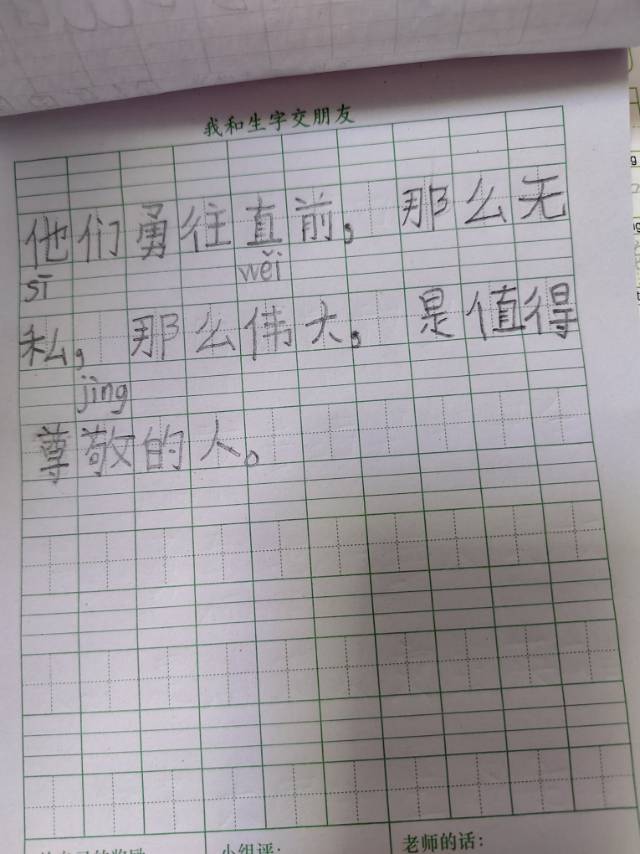 我和生字交朋友
他们勇往直前，那么无
sī wěi
私，那么伟大，是值得
jìng
尊敬的人。
小组评：
老师的话：